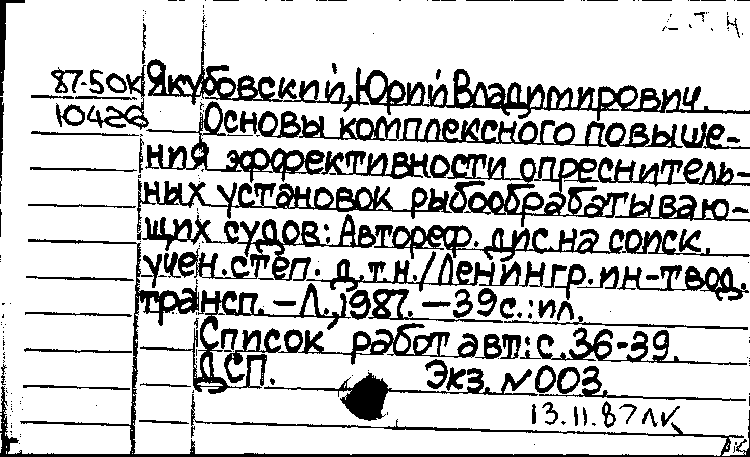 87-5 ОК Якубовский, Юрий Владимирович.
10426 Основы комплексного повыше-
ния эффективности опреснитель-
ных установок рыбообрабатываю-
щих судов: Автореф. дис. на соиск.
учен. степ. д.т.н./Ленингр. ин-т вод.
трансп. — Л., 1987. — 39 с.: ил.
Список работ авт.: с. 36-39.
ДСП. Экз. N 003.
13.11.87 ЛК